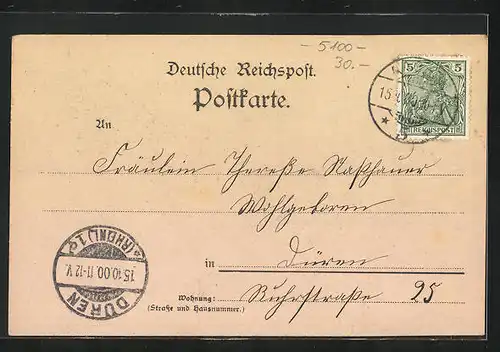 - 5100 -
30.-
Deutsche Reichspost.
Postkarte.
5 5
REICHSPOST
An
Fräulein Therese
Wohlgeboren
in Düren
Wohnung: Ruhrstraße 25
(Straße und Hausnummer.)
DÜREN
15.10.00.11-12V.
(RHEINL) 1 d